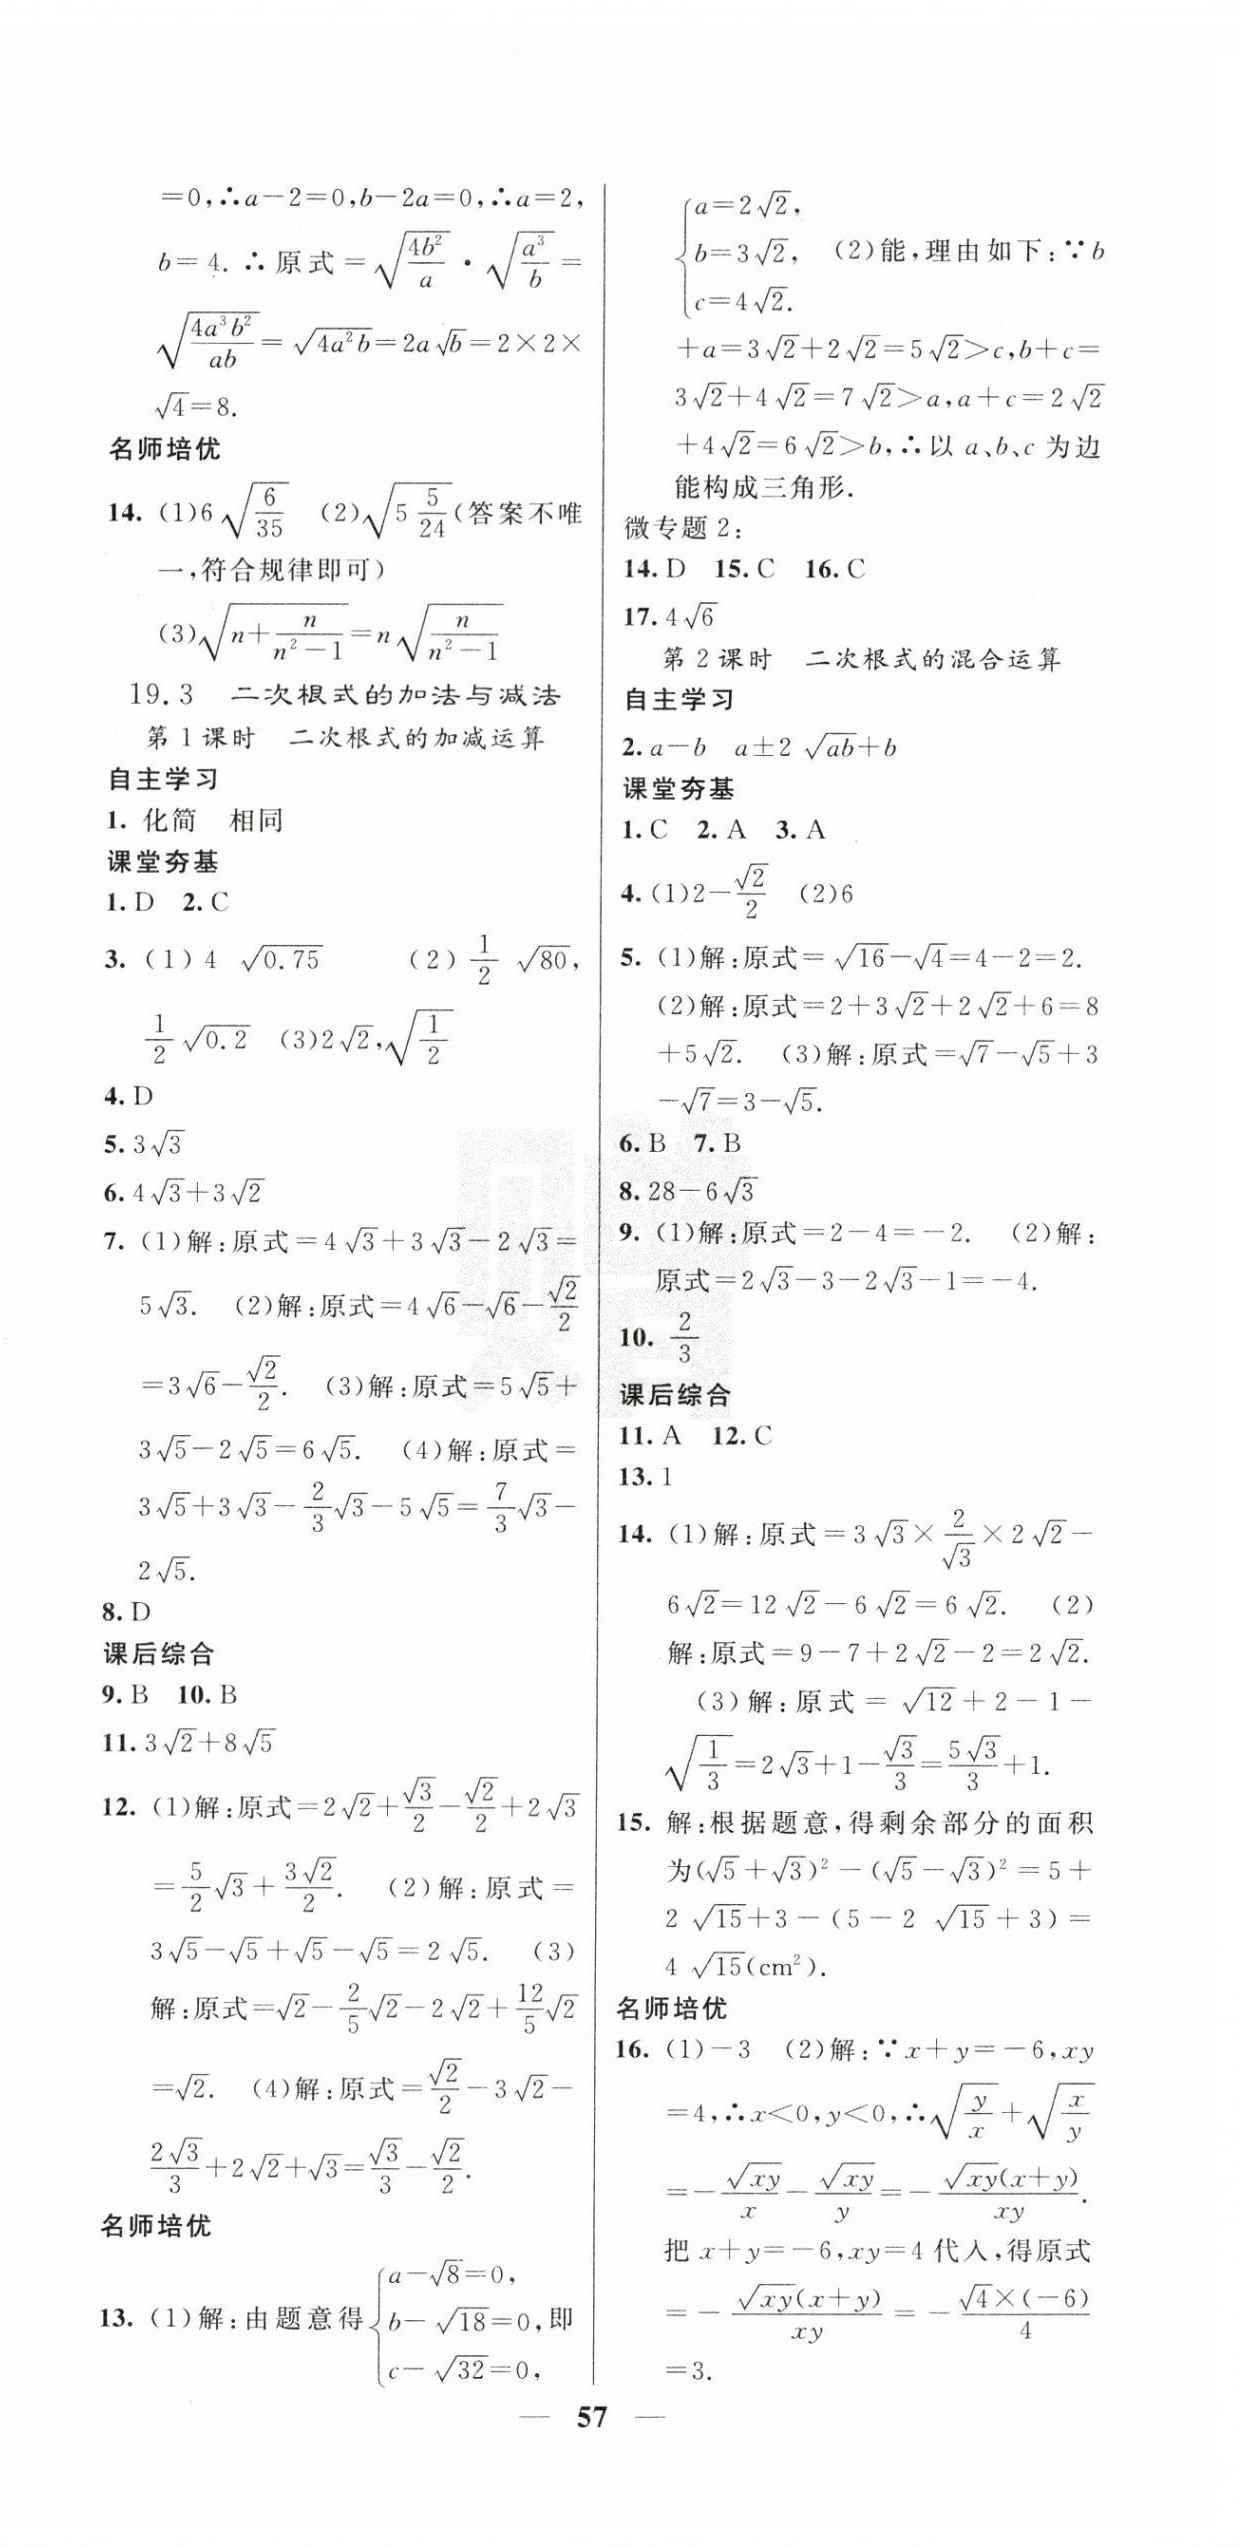 =0,∴a−2=0,b−2a=0,∴a=2,
b=4.∴原式=√(4b²/a)·√(a³/b)=
√(4a³b²/ab)=√(4a²b)=2a√b=2×2×
√4=8.
名师培优
14. (1)6√(6/35) (2)√(5 5/24)(答案不唯
一,符合规律即可)
(3)√(n+n/(n²−1))=n√(n/(n²−1))
19.3 二次根式的加法与减法
第1课时 二次根式的加减运算
自主学习
1. 化简 相同
课堂夯基
1. D 2. C
3. (1)4 √0.75 (2)1/2 √80,
1/2 √0.2 (3)2√2,√(1/2)
4. D
5. 3√3
6. 4√3+3√2
7. (1)解:原式=4√3+3√3−2√3=
5√3. (2)解:原式=4√6−√6−√2/2
=3√6−√2/2. (3)解:原式=5√5+
3√5−2√5=6√5. (4)解:原式=
3√5+3√3−2/3√3−5√5=7/3√3−
2√5.
8. D
课后综合
9. B 10. B
11. 3√2+8√5
12. (1)解:原式=2√2+√3/2−√2/2+2√3
=5/2√3+3√2/2. (2)解:原式=
3√5−√5+√5−√5=2√5. (3)
解:原式=√2−2/5√2−2√2+12/5√2
=√2. (4)解:原式=√2/2−3√2−
2√3/3+2√2+√3=√3/3−√2/2.
名师培优
13. (1)解:由题意得{a−√8=0,
b−√18=0,即
c−√32=0,
{a=2√2,
b=3√2, (2)能,理由如下:∵b
c=4√2.
+a=3√2+2√2=5√2>c,b+c=
3√2+4√2=7√2>a,a+c=2√2
+4√2=6√2>b,∴以a、b、c为边
能构成三角形.
微专题2:
14. D 15. C 16. C
17. 4√6
第2课时 二次根式的混合运算
自主学习
2. a−b a±2√ab+b
课堂夯基
1. C 2. A 3. A
4. (1)2−√2/2 (2)6
5. (1)解:原式=√16−√4=4−2=2.
(2)解:原式=2+3√2+2√2+6=8
+5√2. (3)解:原式=√7−√5+3
−√7=3−√5.
6. B 7. B
8. 28−6√3
9. (1)解:原式=2−4=−2. (2)解:
原式=2√3−3−2√3−1=−4.
10. 2/3
课后综合
11. A 12. C
13. 1
14. (1)解:原式=3√3×2/√3×2√2−
6√2=12√2−6√2=6√2. (2)
解:原式=9−7+2√2−2=2√2.
(3)解:原式=√12+2−1−
√(1/3)=2√3+1−√3/3=5√3/3+1.
15. 解:根据题意,得剩余部分的面积
为(√5+√3)²−(√5−√3)²=5+
2√15+3−(5−2√15+3)=
4√15(cm²).
名师培优
16. (1)−3 (2)解:∵x+y=−6,xy
=4,∴x<0,y<0,∴√(y/x)+√(x/y)
=−√xy/x−√xy/y=−√xy(x+y)/xy.
把x+y=−6,xy=4代入,得原式
=−√xy(x+y)/xy=−√4×(−6)/4
=3.
57